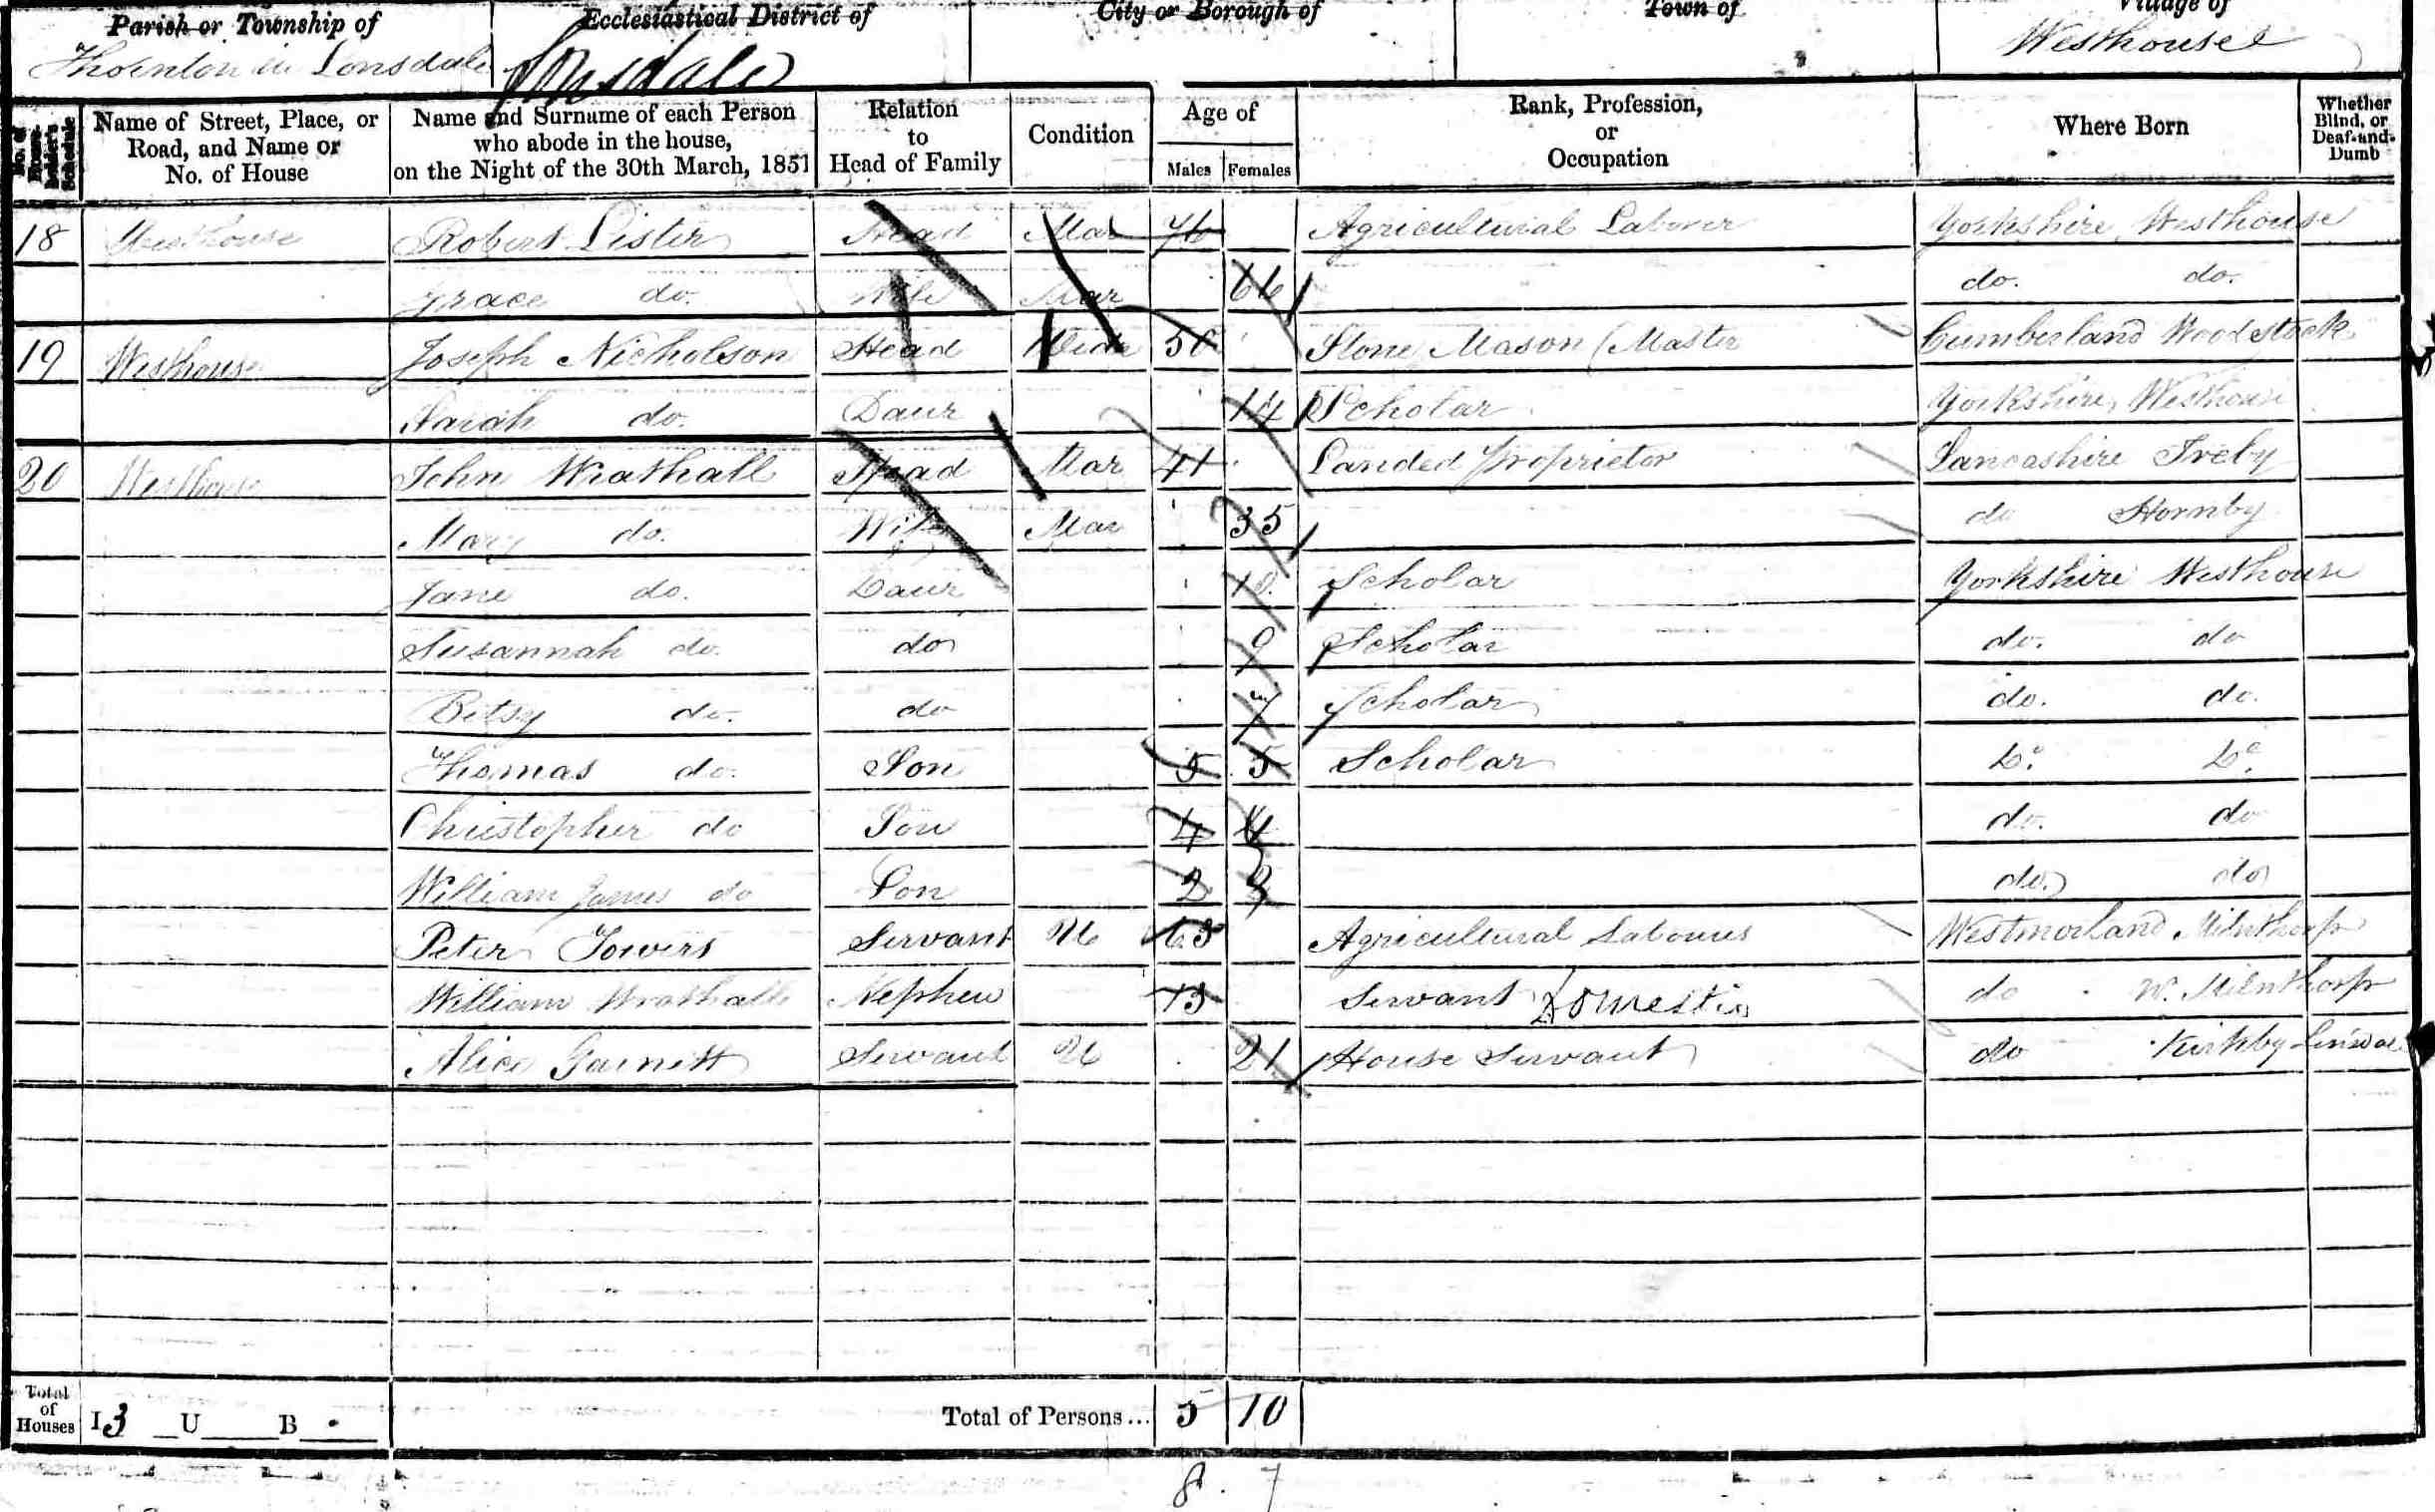 Parish or Township of Ecclesiastical District of City or Borough of Town of Village of
Thornton in Lonsdale Lonsdale Westhouse
No. of House-holder's Schedule Name of Street, Place, or Road, and Name or No. of House Name and Surname of each Person who abode in the house, on the Night of the 30th March, 1851 Relation to Head of Family Condition Age of Males Females Rank, Profession, or Occupation Where Born Whether Blind, or Deaf-and-Dumb
18 Westhouse Robert Lister Head Mar 76 Agricultural Laborer Yorkshire Westhouse
Grace do. Wife Mar 66 do. do.
19 Westhouse Joseph Nicholson Head Widr 50 Stone Mason (Master Cumberland Woodstock
Sarah do. Daur 14 Scholar Yorkshire, Westhouse
20 Westhouse John Wrathall Head Mar 41 Landed proprietor Lancashire Ireby
Mary do. Wife Mar 35 do Hornby
Jane do. Daur 10 Scholar Yorkshire Westhouse
Susannah do. do 9 Scholar do. do
Betsy do. do 7 Scholar do. do.
Thomas do. Son 5 5 Scholar Do. Do.
Christopher do Son 4 4 do. do
William James do Son 2 2 do. do
Peter Towers Servant U 63 Agricultural Labourer Westmorland Milnthorp
William Wrathall Nephew 13 Servant Domestic do W. Milnthorp
Alice Garnett Servant U 21 House Servant do Kirkby Lonsdale
Total of Houses I 3 U B Total of Persons... 5 10
8. 7